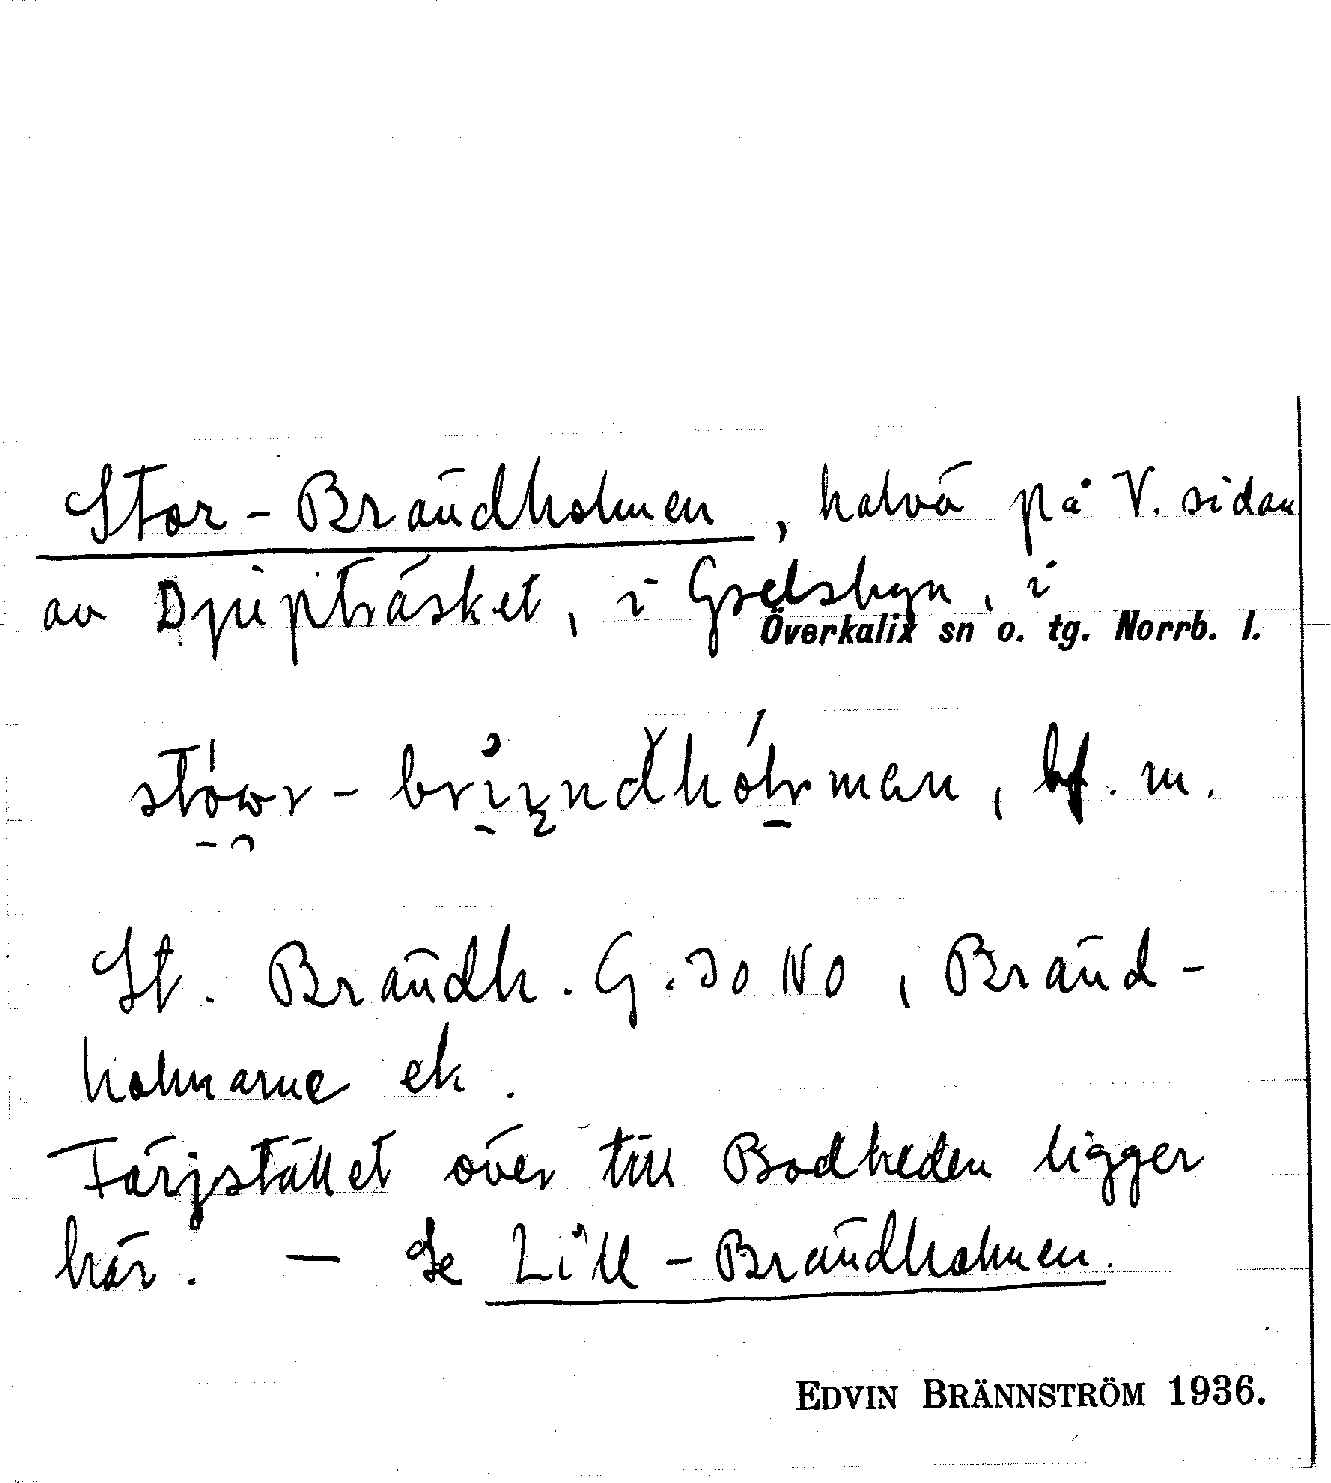 Stor-Brändholmen, halvö på V. sidan
av Djupträsket, i Grelsbyn, i
Överkalix sn o. tg. Norrb. l.
bf. m.
St. Brändh. G. 30 NO, Bränd-
holmarne ek.
Färjstället över till Bodheden ligger
här. — Se Lill-Brändholmen.
EDVIN BRÄNNSTRÖM 1936.